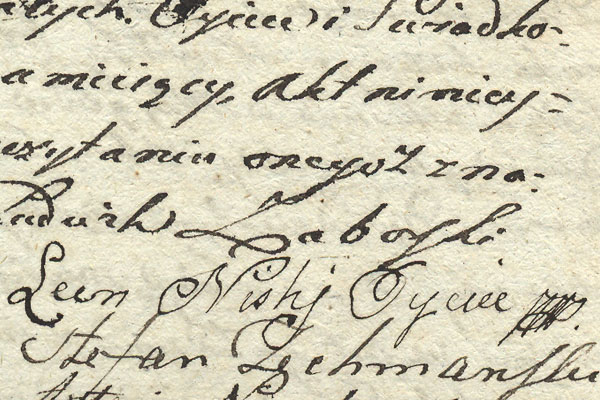 Oycu i Swiadko-
mieiący, Akt niniey-
czytaniu onegoż zna-
Ludwik Zaboski
Leon Niskj Oyciec
Stefan Zechmanski